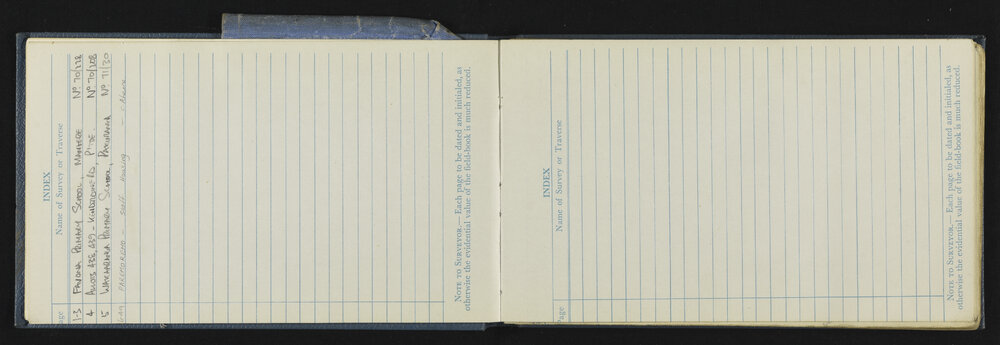 INDEX
Page Name of Survey or Traverse
1-3 FAVONA PRIMARY SCHOOL, MANGERE Nº 70/278
4 ALLOTS 488, 489 - PTDE. Nº 70/208
5 WAKAARANGA PRIMARY SCHOOL, PAKURANGA Nº 71/30
PAREMOREMO - Staff Housing - Above
NOTE TO SURVEYOR.— Each page to be dated and initialed, as
otherwise the evidential value of the field-book is much reduced.
INDEX
Page Name of Survey or Traverse
NOTE TO SURVEYOR.— Each page to be dated and initialed, as
otherwise the evidential value of the field-book is much reduced.